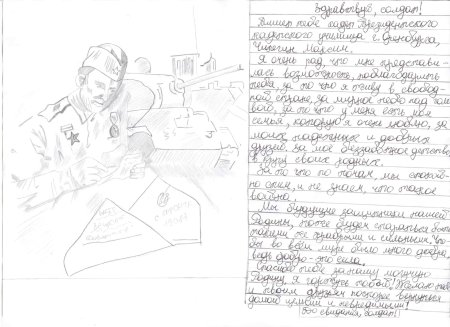 Здравствуй, солдат!
Пишет тебе кадет Президентского
кадетского училища г. Оренбурга,
Максим.
Я очень рад, что мне представи-
лась возможность, поблагодарить
тебя, за то что я живу в свобод-
ной стране, за мирное небо над голо-
вой, за то что у меня есть моя
семья, которую я очень люблю, за
моих надёжных и добрых
друзей. За моё беззаботное детство
в кругу своих родных.
За то что по ночам, мы спокой-
но спим, и не знаем, что такое
война.
Мы будущие защитники нашей
Родины, тоже будем стараться быть
такими же храбрыми и сильными. Что
бы во всём мире было много добра,
ведь добро - это сила.
Спасибо тебе за нашу могучую
Родину, я горжусь тобой! Желаю тебе
и твоим друзьям поскорее вернуться
домой целыми и невредимыми!
До свидания, солдат!